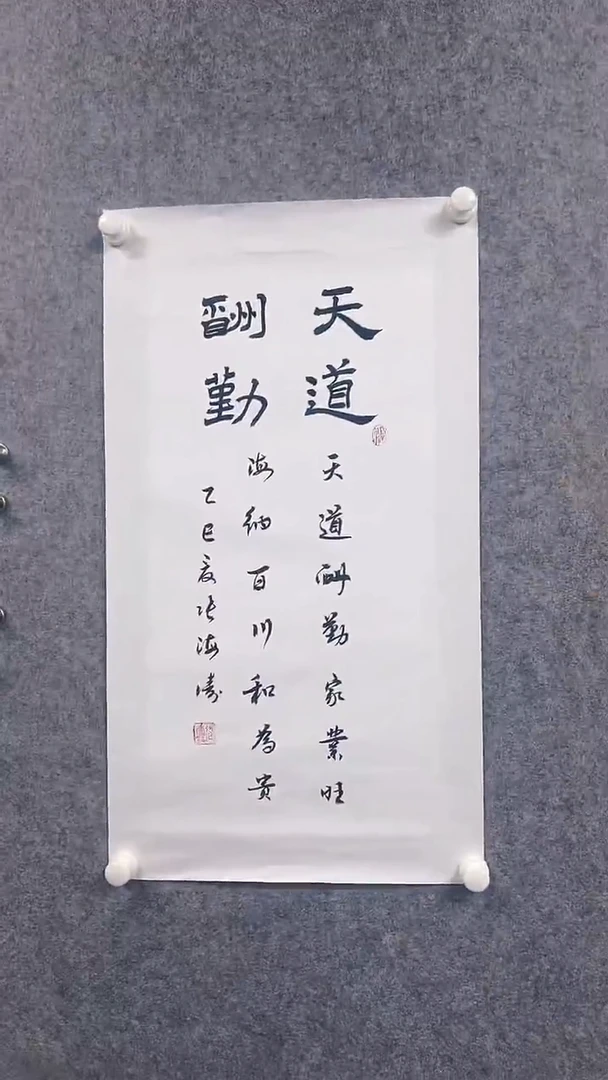 天道
酬勤
天道酬勤家業旺
海納百川和為貴
乙巳夏张海濤